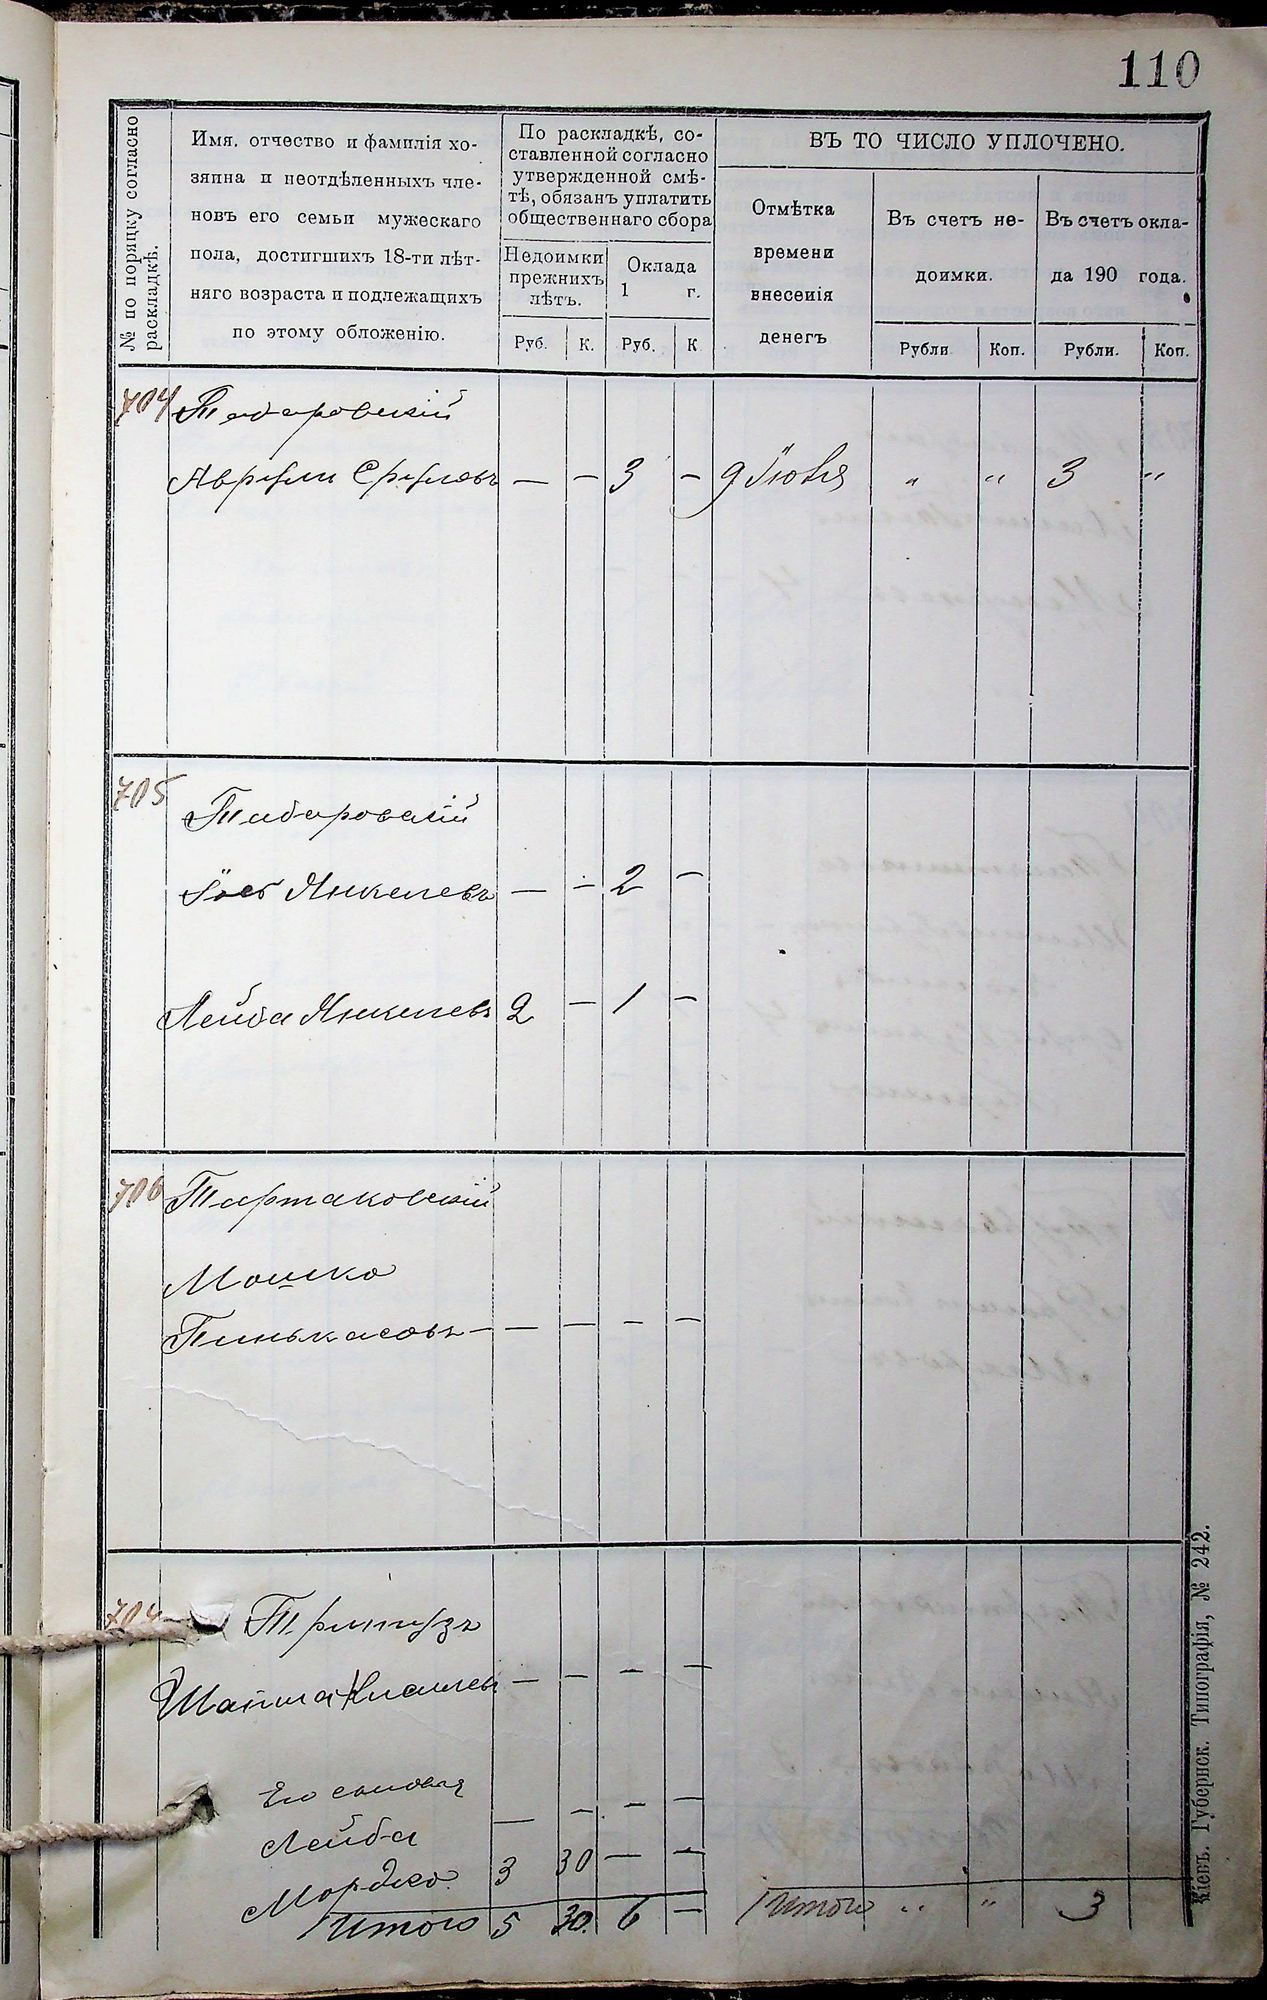 110
№ по поряцку согласно
раскладкѣ.
Имя, отчество и фамилія хо-
зяина и неотдѣленныхъ чле-
новъ его семьи мужескаго
пола, достигшихъ 18-ти лѣт-
няго возраста и подлежащихъ
по этому обложенію.
По раскладкѣ, со-
ставленной согласно
утвержденной смѣ-
тѣ, обязанъ уплатить
общественнаго сбора
Недоимки
прежнихъ
лѣтъ.
Оклада
1 г.
Руб. К. Руб. К
ВЪ ТО ЧИСЛО УПЛОЧЕНО.
Отмѣтка
времени
внесенія
денегъ
Въ счетъ не-
доимки.
Въ счетъ окла-
да 190 года.
Рубли Коп. Рубли. Коп.
704
Аврумъ Сруловъ — — 3 — 9 Іюня " " 3 "
705 Тидаровскій
Іось Янкелевъ — — 2 —
Лейба Янкелевъ 2 — 1 —
706 Тартаковскій
Мошко
Пинькасовъ — — — — —
Его сыновья
Лейба — — — —
Мордко 3 30 — —
Итого 5 30. 6 — Итого " " 3
Кіевъ. Губернск. Типографія, № 242.